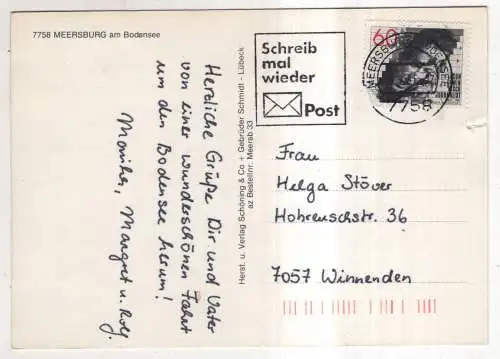 7758 MEERSBURG am Bodensee
Herzliche Grüße Dir und Vater
von einer wunderschönen Fahrt
um den Bodensee herum!
Margret u. Rolf.
Herst. u. Verlag Schöning & Co + Gebrüder Schmidt - Lübeck
az Bestellnr. Meersb 33
Schreib
mal
wieder
Post
60
MEERSBURG
7758
Frau
Helga Stöver
7057 Winnenden